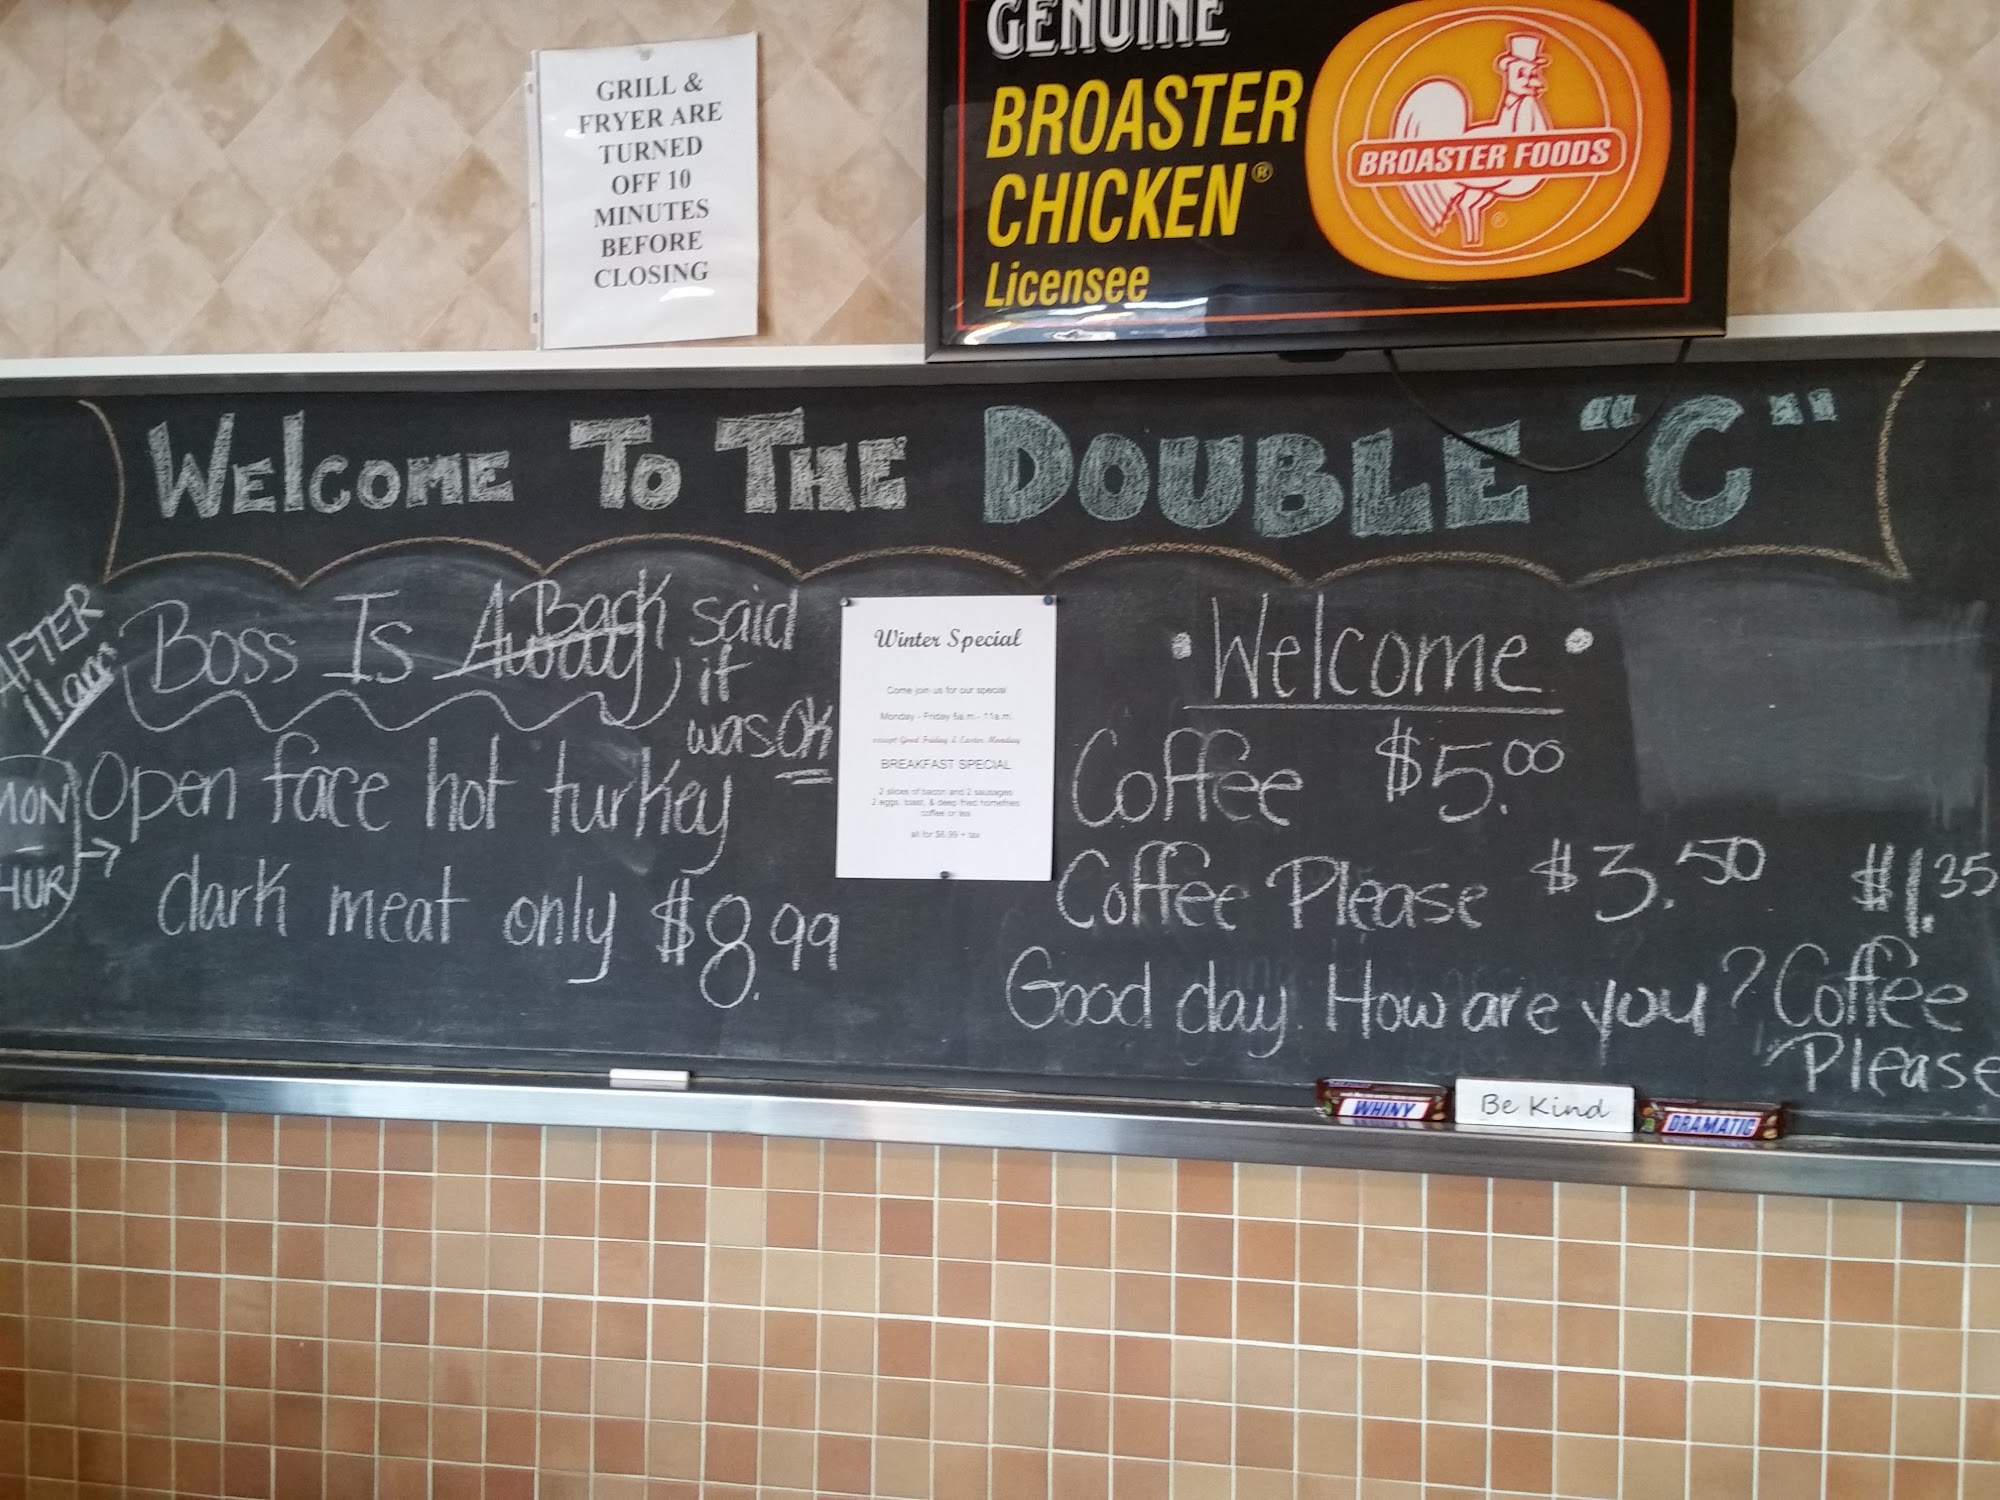 GRILL &
FRYER ARE
TURNED
OFF 10
MINUTES
BEFORE
CLOSING
GENUINE
BROASTER
CHICKEN®
Licensee
BROASTER FOODS
®
WELCOME TO THE DOUBLE "C"
AFTER
11am
Boss Is Away Back said
it
was OK
MON
-
HUR
Open face hot turkey
dark meat only $8.99
Winter Special
Come join us for our special
Monday - Friday 6a.m.- 11a.m.
except Good Friday & Easter Monday
BREAKFAST SPECIAL
2 slices of bacon and 2 sausages
2 eggs, toast, & deep fried homefries
coffee or tea
all for $6.99 + tax
• Welcome •
Coffee $5.00
Coffee Please $3.50
$1.35
Good day. How are you? Coffee
Please
WHINY
Be Kind
DRAMATIC